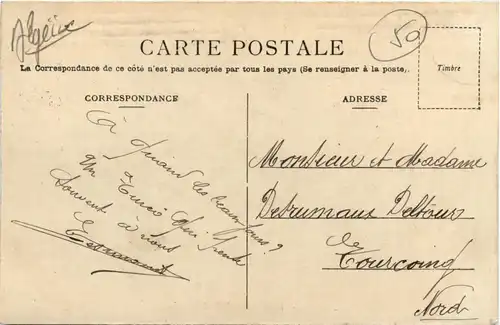 Algérie
50
CARTE POSTALE
La Correspondance de ce côté n'est pas acceptée par tous les pays (Se renseigner à la poste).
Timbre
CORRESPONDANCE
à quand les beaux jours?
un qui pense
souvent à vous
ADRESSE
Monsieur et Madame
Detrumaux Deltour
Tourcoing
Nord